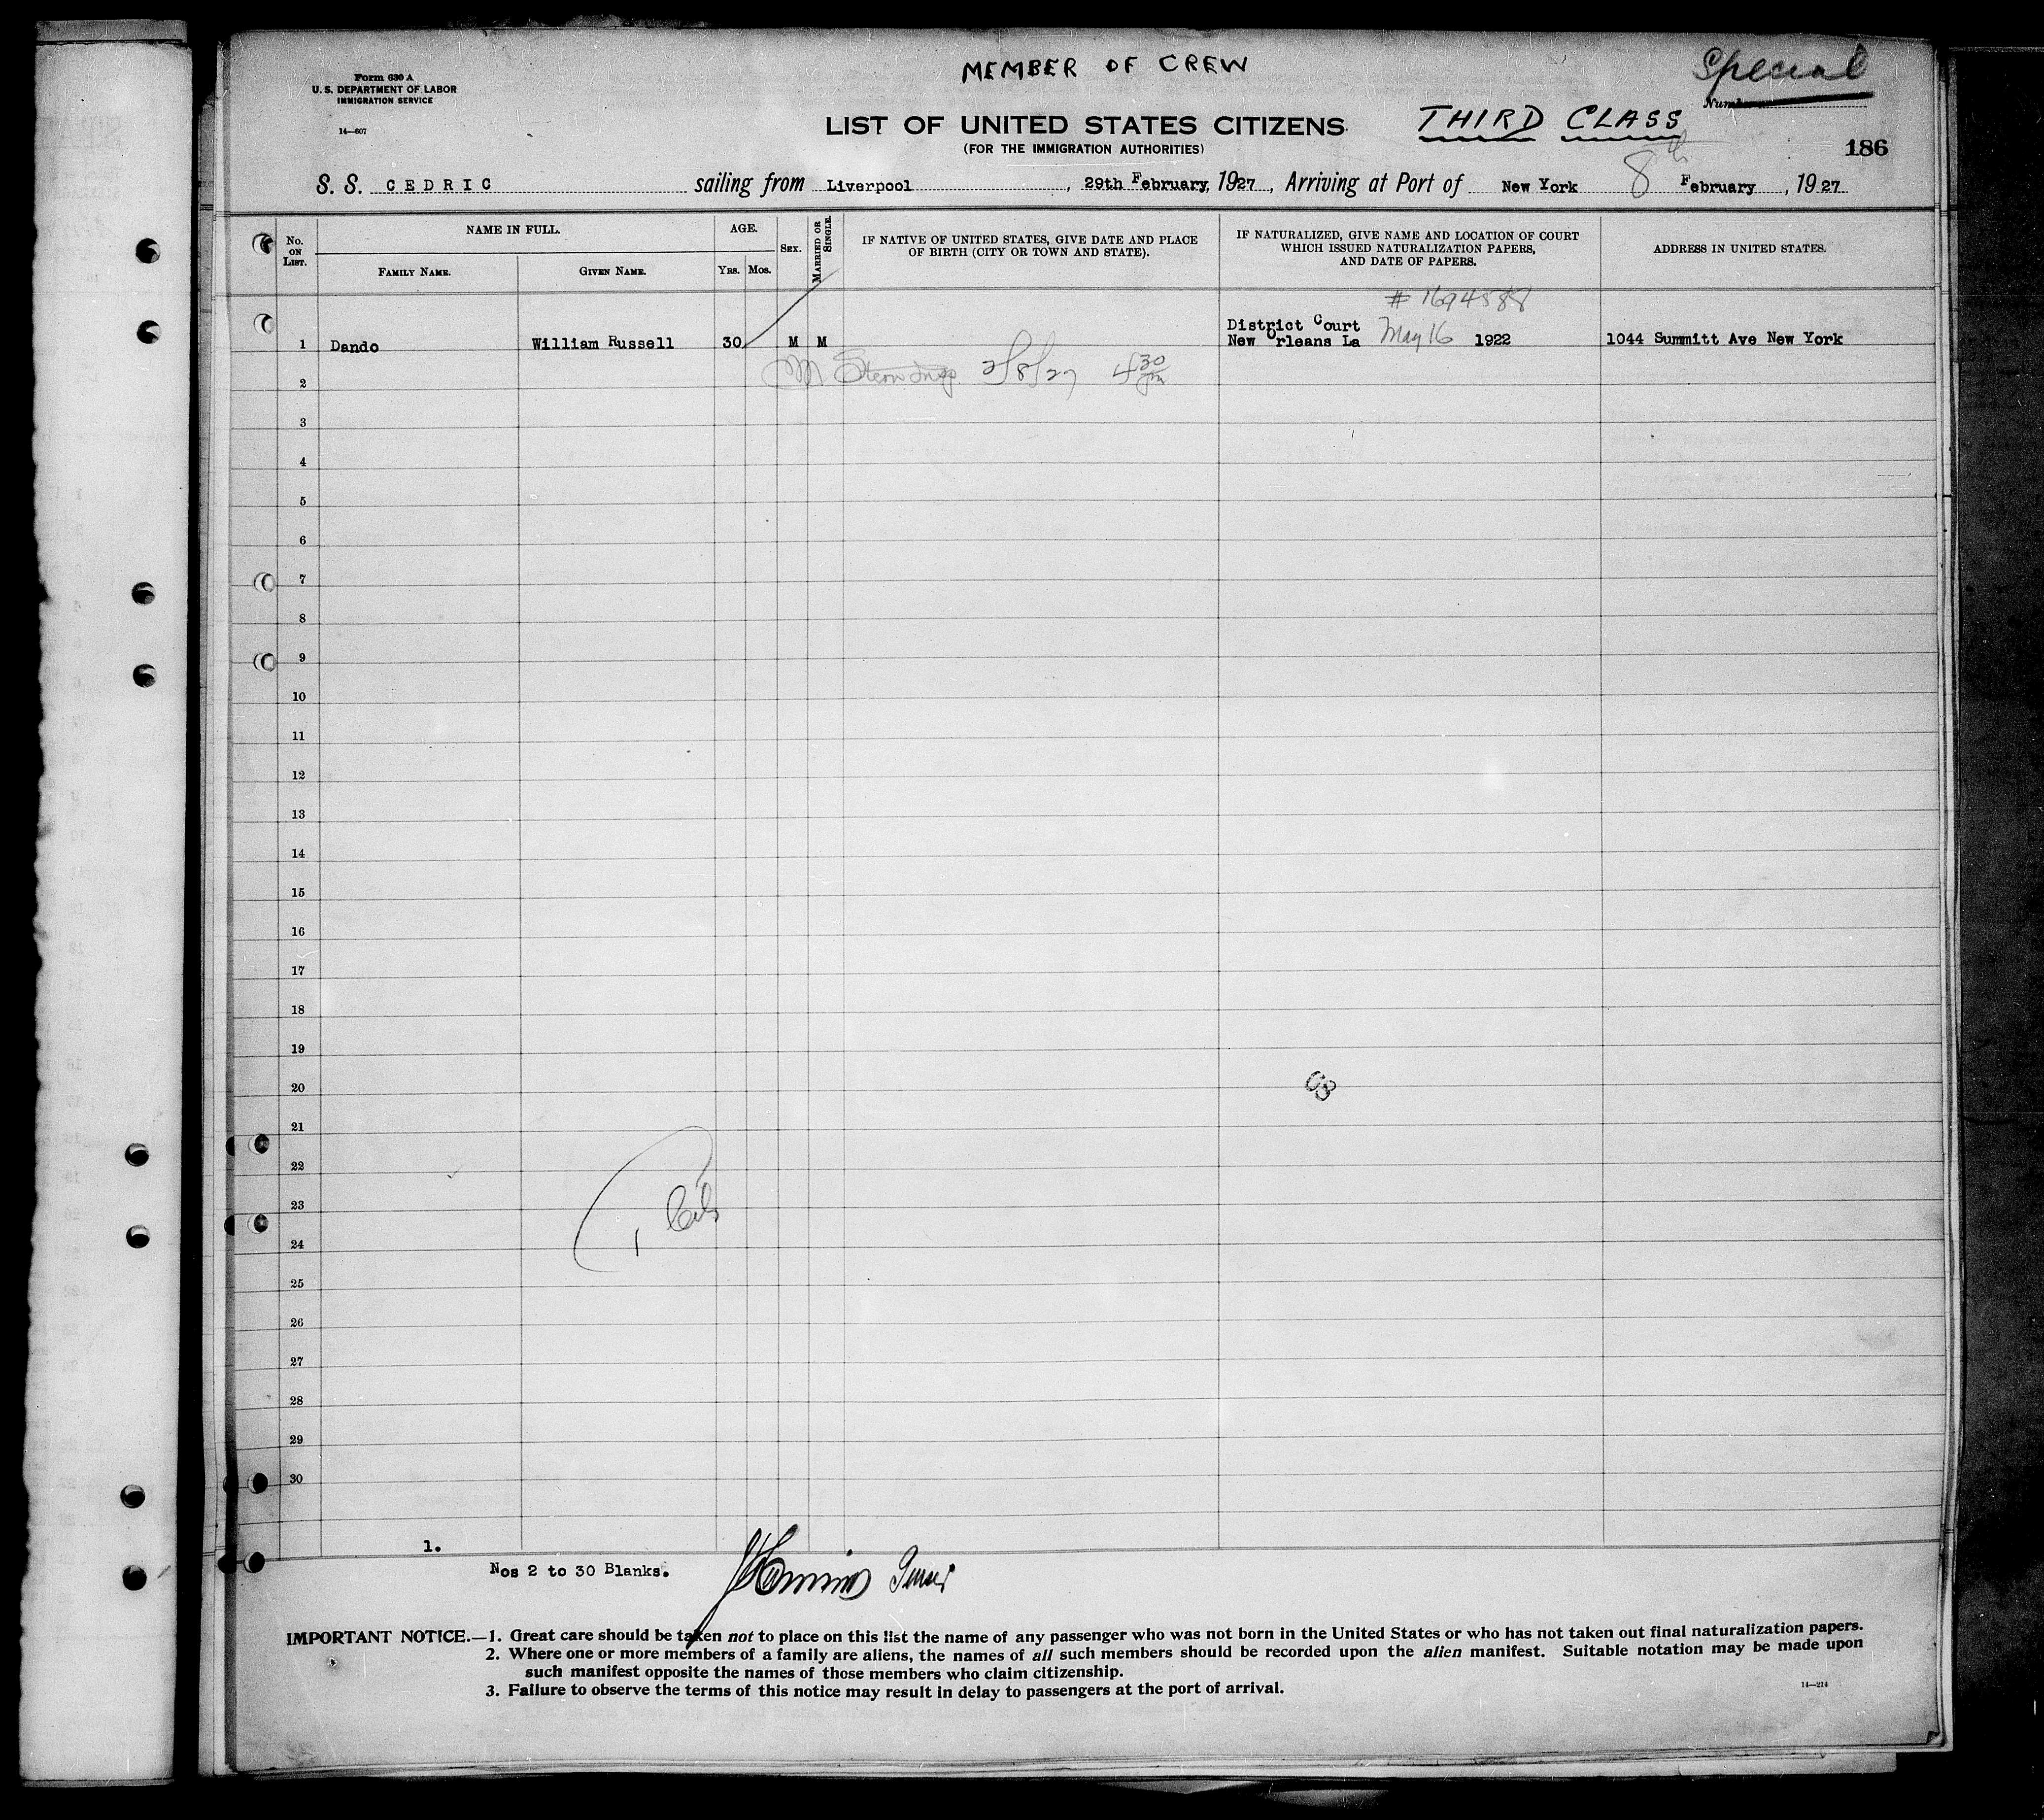 MEMBER OF CREW
Special
Form 630 A
U. S. DEPARTMENT OF LABOR
IMMIGRATION SERVICE
14—607
Number
LIST OF UNITED STATES CITIZENS
THIRD CLASS
(FOR THE IMMIGRATION AUTHORITIES)
186
S. S. CEDRIC sailing from Liverpool, 29th February, 1927, Arriving at Port of New York 8th February, 1927
No. ON LIST.
NAME IN FULL.
FAMILY NAME.
GIVEN NAME.
AGE.
YRS.
MOS.
SEX.
MARRIED OR SINGLE.
IF NATIVE OF UNITED STATES, GIVE DATE AND PLACE
OF BIRTH (CITY OR TOWN AND STATE).
IF NATURALIZED, GIVE NAME AND LOCATION OF COURT
WHICH ISSUED NATURALIZATION PAPERS,
AND DATE OF PAPERS.
ADDRESS IN UNITED STATES.
# 1694588
District Court
1 Dando William Russell 30 M M New Orleans La May 16 1922 1044 Summitt Ave New York
2 M Stern Insp. 2/8/27 4 30 pm
3
4
5
6
7
8
9
10
11
12
13
14
15
16
17
18
19
20
21
22
23
24
25
26
27
28
29
30
1.
Nos 2 to 30 Blanks.
IMPORTANT NOTICE.—1. Great care should be taken not to place on this list the name of any passenger who was not born in the United States or who has not taken out final naturalization papers.
2. Where one or more members of a family are aliens, the names of all such members should be recorded upon the alien manifest. Suitable notation may be made upon
such manifest opposite the names of those members who claim citizenship.
3. Failure to observe the terms of this notice may result in delay to passengers at the port of arrival.
14—214